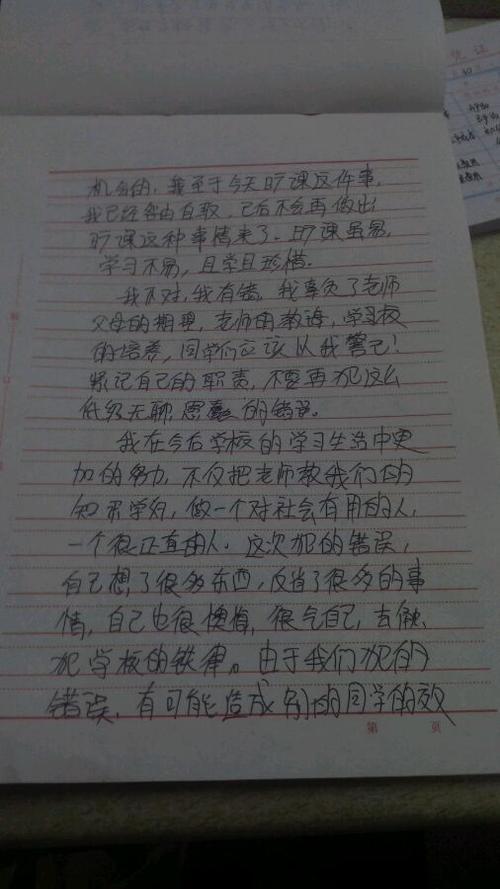 机会的，我至于今天旷课这件事，
我已经咎由自取，已后不会再做出
旷课这种事情来了。旷课虽易，
学习不易，且学且珍惜。
我不对，我有错，我辜负了老师
父母的期望，老师的教诲，学习校
的培养，同学们应该从我警己！
紧记自己的职责，不要再犯这么
低级无聊愚蠢的错误。
我在今后学校的学习生活中更
加的努力，不仅把老师教我们的
知识学好，做一个对社会有用的人，
一个很正直的人。这次犯的错误，
自己想了很多东西，反省了很多的事
情，自己也很懊悔，很气自己，去触
犯学校的铁律。由于我们犯的
错误，有可能造成别的同学的效
第 页
凭 证